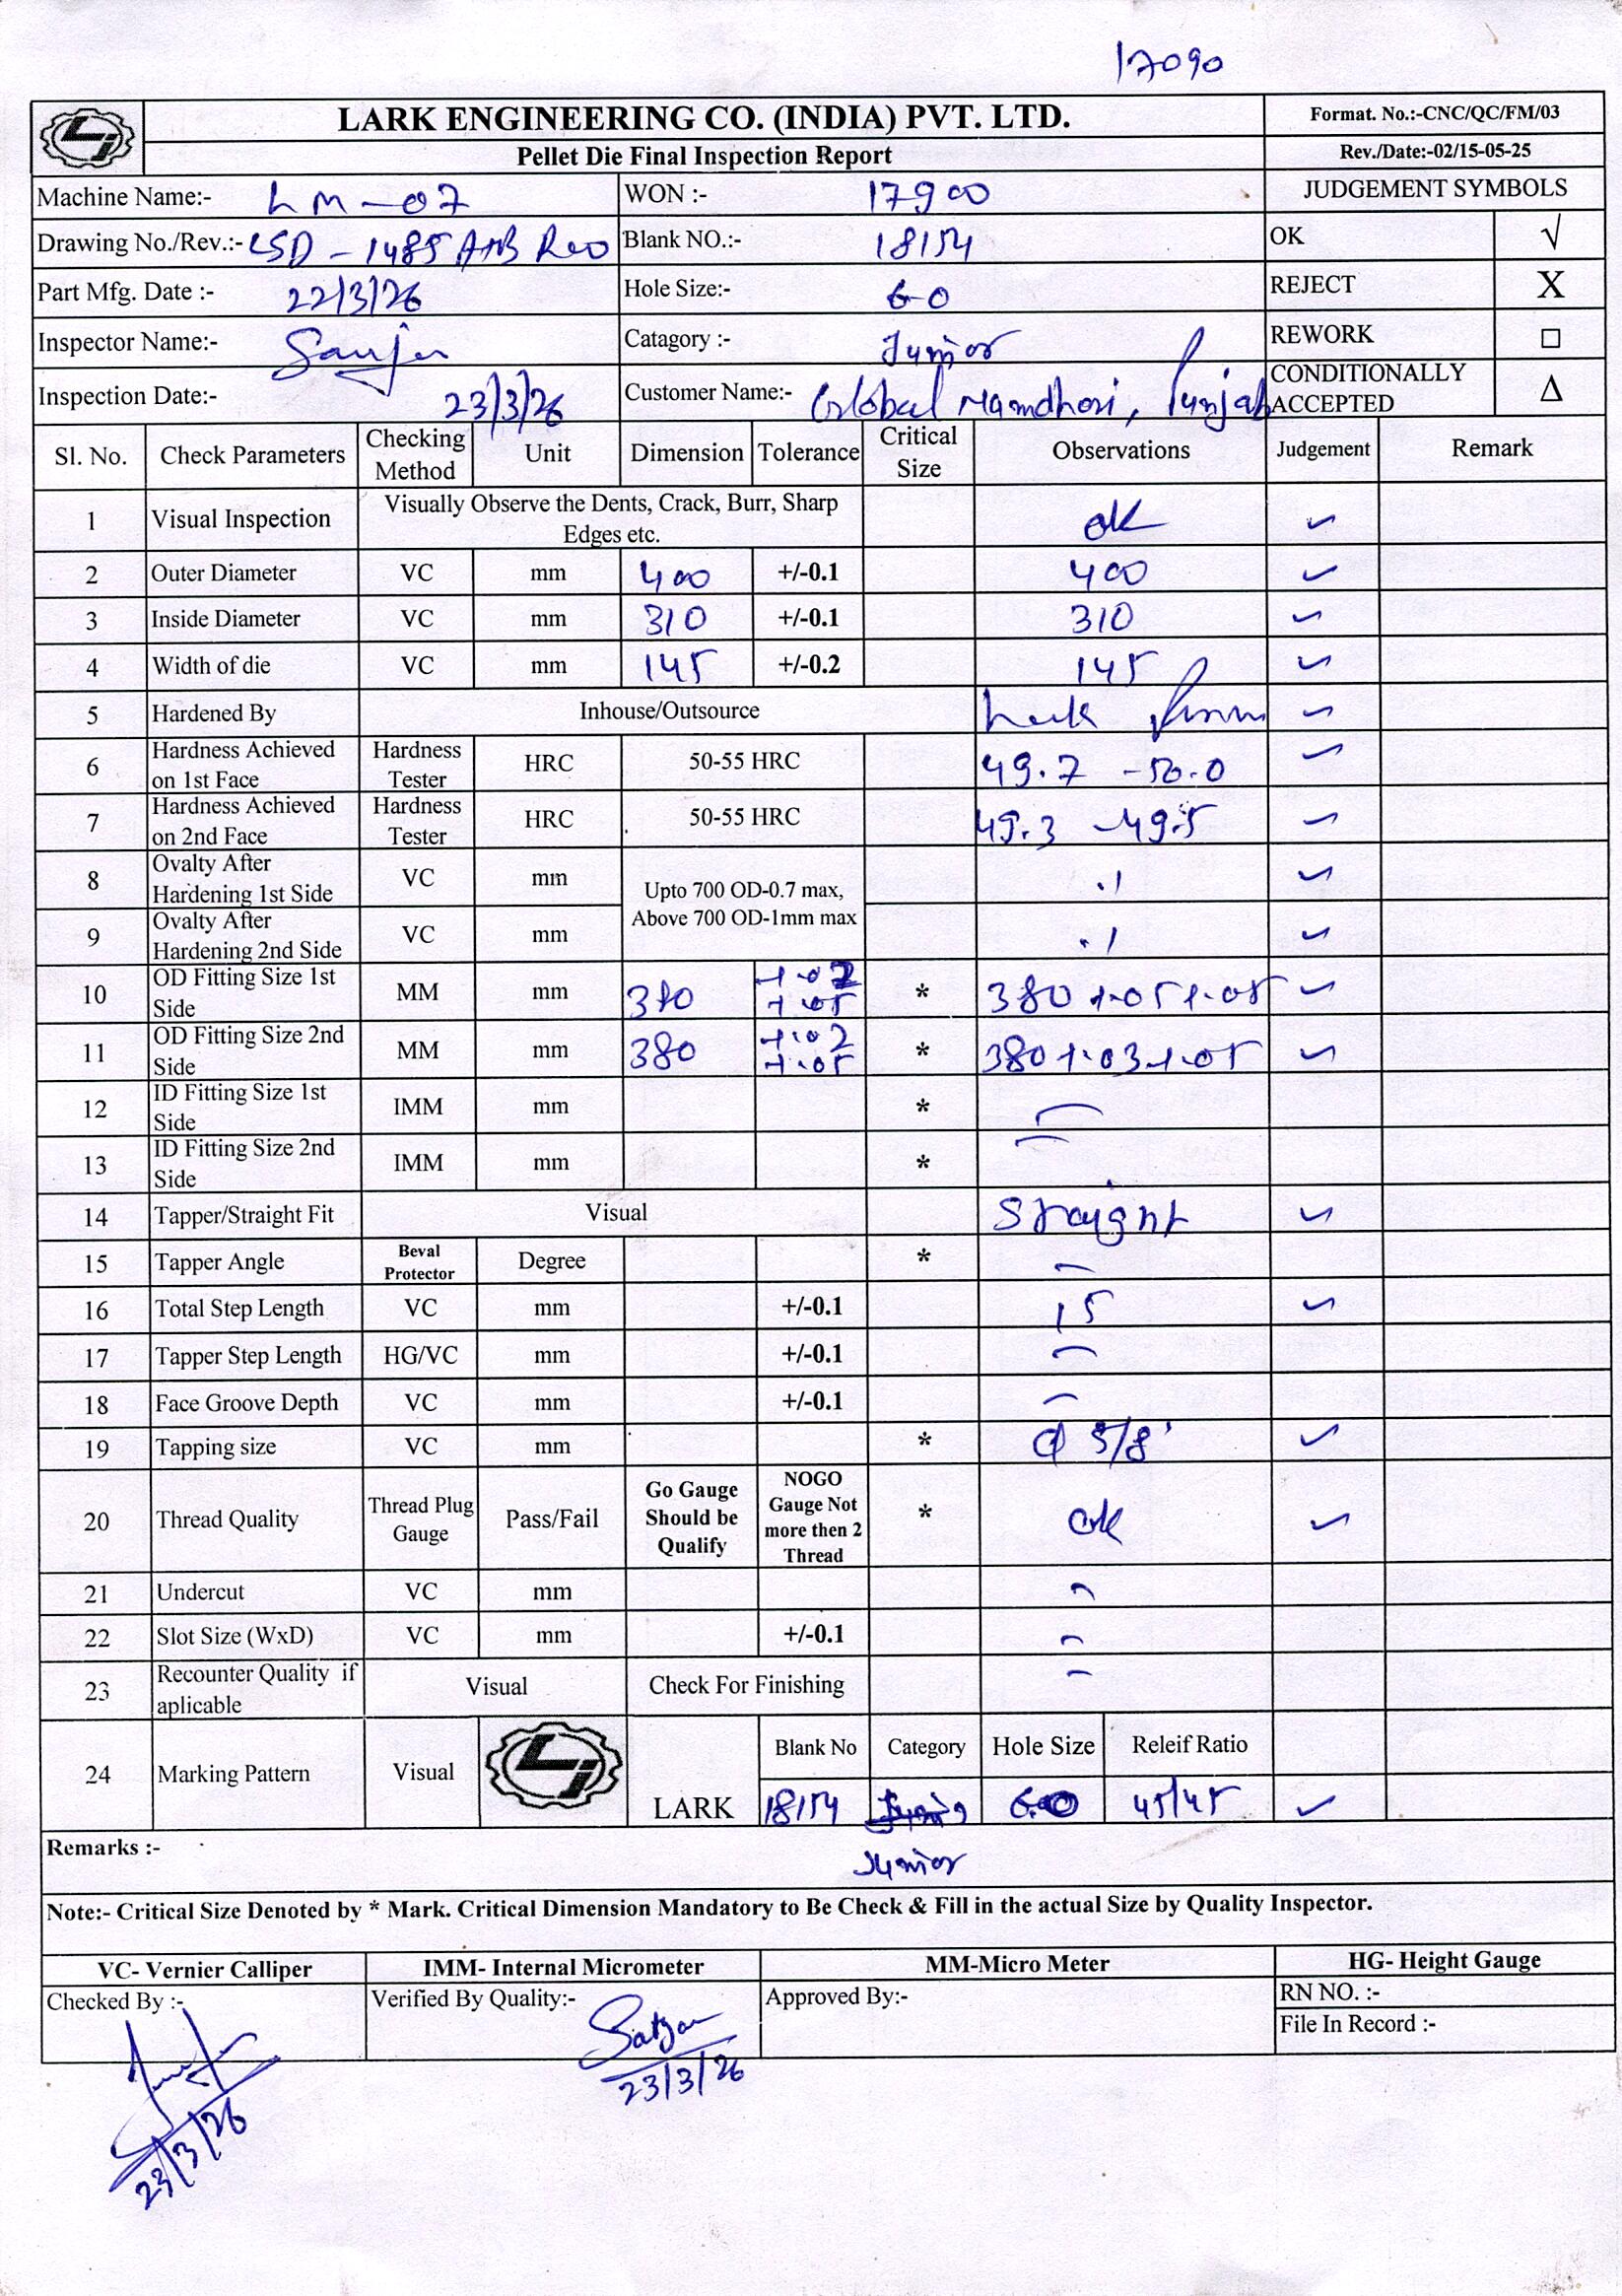 17090
LARK ENGINEERING CO. (INDIA) PVT. LTD.
Format. No.:-CNC/QC/FM/03
Pellet Die Final Inspection Report
Rev./Date:-02/15-05-25
Machine Name:- LM-07 WON :- 17900 JUDGEMENT SYMBOLS
Drawing No./Rev.:- LSD-1485 Blank NO.:- 18154 OK √
Part Mfg. Date :- 22/3/26 Hole Size:- 6.0 REJECT X
Inspector Name:- Catagory :- Junior REWORK □
Inspection Date:- 23/3/26 Customer Name:- Global Punjab CONDITIONALLY ACCEPTED Δ
Sl. No. Check Parameters Checking Method Unit Dimension Tolerance Critical Size Observations Judgement Remark
1 Visual Inspection Visually Observe the Dents, Crack, Burr, Sharp Edges etc. ok ✓
2 Outer Diameter VC mm 400 +/-0.1 400 ✓
3 Inside Diameter VC mm 310 +/-0.1 310 ✓
4 Width of die VC mm 145 +/-0.2 145 ✓
5 Hardened By Inhouse/Outsource ✓
6 Hardness Achieved on 1st Face Hardness Tester HRC 50-55 HRC 49.7 - 50.0 ✓
7 Hardness Achieved on 2nd Face Hardness Tester HRC 50-55 HRC 49.3 - 49.5 ✓
8 Ovalty After Hardening 1st Side VC mm Upto 700 OD-0.7 max, Above 700 OD-1mm max .1 ✓
9 Ovalty After Hardening 2nd Side VC mm .1 ✓
10 OD Fitting Size 1st Side MM mm 380 +.02 +.05 * 380 +.05 +.05 ✓
11 OD Fitting Size 2nd Side MM mm 380 +.02 +.05 * 380 +.03 +.05 ✓
12 ID Fitting Size 1st Side IMM mm * —
13 ID Fitting Size 2nd Side IMM mm * —
14 Tapper/Straight Fit Visual Straight ✓
15 Tapper Angle Beval Protector Degree * —
16 Total Step Length VC mm +/-0.1 15 ✓
17 Tapper Step Length HG/VC mm +/-0.1 —
18 Face Groove Depth VC mm +/-0.1 —
19 Tapping size VC mm * Φ 5/8' ✓
20 Thread Quality Thread Plug Gauge Pass/Fail Go Gauge Should be Qualify NOGO Gauge Not more then 2 Thread * ok ✓
21 Undercut VC mm —
22 Slot Size (WxD) VC mm +/-0.1 —
23 Recounter Quality if aplicable Visual Check For Finishing —
24 Marking Pattern Visual LARK Blank No Category Hole Size Releif Ratio
18154 6.0 45/45 ✓
Remarks :- Junior
Note:- Critical Size Denoted by * Mark. Critical Dimension Mandatory to Be Check & Fill in the actual Size by Quality Inspector.
VC- Vernier Calliper IMM- Internal Micrometer MM-Micro Meter HG- Height Gauge
Checked By :- Verified By Quality:- Approved By:- RN NO. :-
File In Record :-
23/3/26
23/3/26